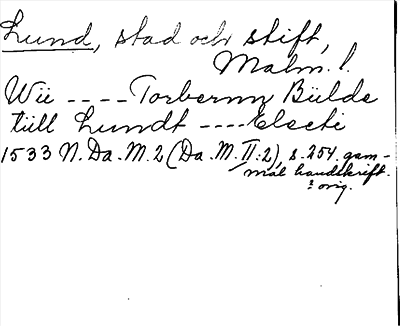 Lund, stad och stift,
Malm. l.
Wii ---- Torbernn Bülde
tiill Lundt ---- Elsete
1533 N. Da. M. 2 (Da. M. II:2), s. 254. gam-
mal handskrift.
? orig.